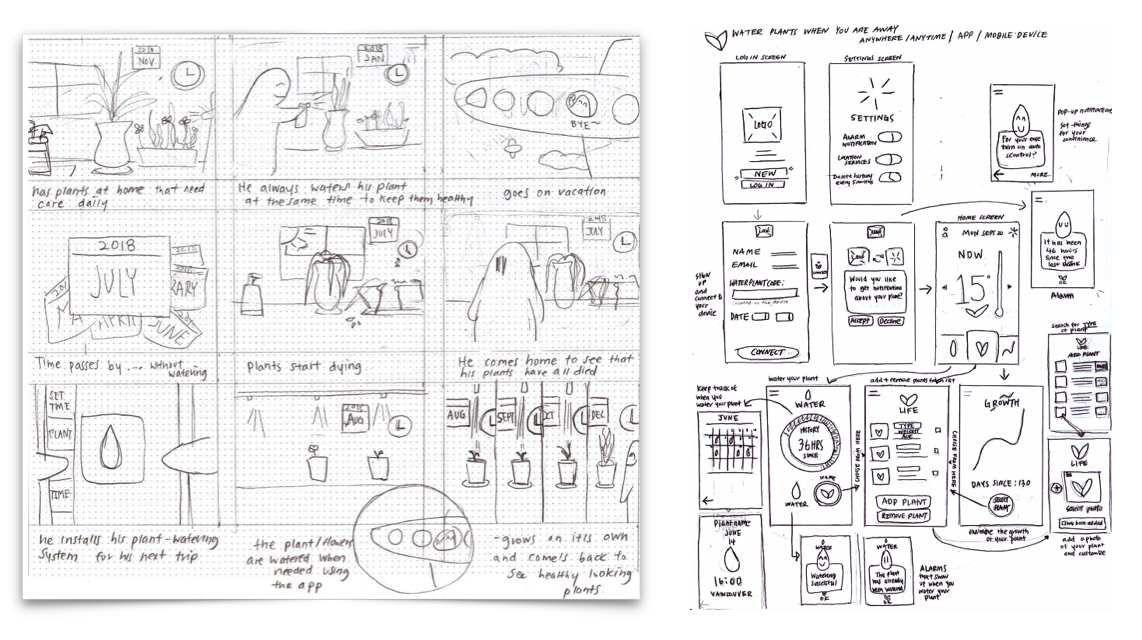 2018
NOV
2018
JAN
BYE~
has plants at home that need
care daily
He always waters his plant
at the same time to keep them healthy
goes on vacation
2018
JULY
APRIL
JUNE
JULY
JULY
Time passes by .... without
watering
Plants start dying
He comes home to see that
his plants have all died
SET
TIME
PLANT
TIME
AUG
AUG
SEPT
OCT
DEC
he installs his plant-watering
system for his next trip
the plant/flowers
are watered when
needed using
the app
-grows on it's own
and comes back to
see healthy looking
plants.
WATER PLANTS WHEN YOU ARE AWAY
ANYWHERE/ANYTIME/ APP / MOBILE DEVICE
LOG IN SCREEN
LOGO
NEW
LOG IN
SETTINGS SCREEN
SETTINGS
ALARM
NOTIFICATION
LOCATION
SERVICES
Delete history
every 3 months
For your ease
turn on auto
control?
MORE
Pop-up notifications
set things
for your
convenience
SIGN
UP
and
connect to
your
device
NAME
EMAIL
WATERPLANT CODE:
DATE
CONNECT
Would you like
to get notifications
about your plant?
Accept
Decline
HOME SCREEN
MON SEPT 20
NOW
15°
It has been
46 hours
since the
last drink
OK
Alarm
Search for TYPE
of plant
LIFE
ADD PLANT
Keep track of
when you
water your plant
JUNE
water your plant
WATER
HISTORY
36HRS
SINCE
NAME
WATER
CHOOSE FROM HERE
add + remove plants from list
LIFE
ADD PLANT
REMOVE PLANT
CHOOSE FROM HERE
GROWTH
DAYS SINCE: 130
SELECT
PLANT
examine the growth
of your plant
LIFE
SELECT PHOTO
add a photo
of your plant
and customize
Plant name
JUNE
14
16:00
VANCOUVER
WATER
Watering
successful
OK
WATER
The plant
has already
been watered
OK
ALARMS
that show
up when you
water your
plant